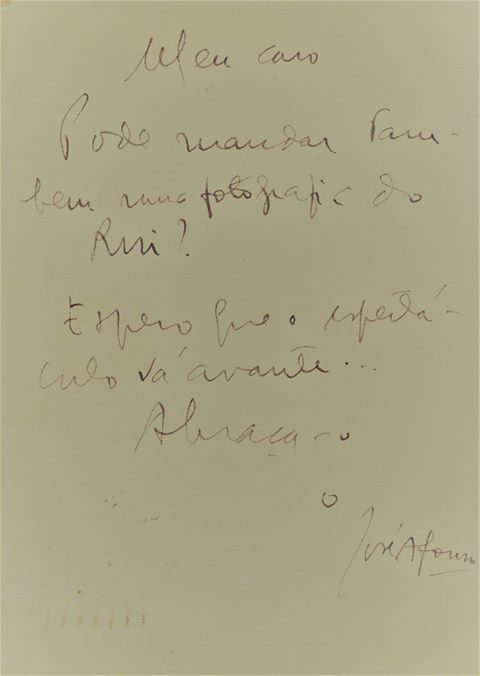 Meu caro
Pode mandar tam-
bem uma fotografia do
Rui?
Espero que o espectá-
culo vá avante...
Abraça-o
o
José Afonso